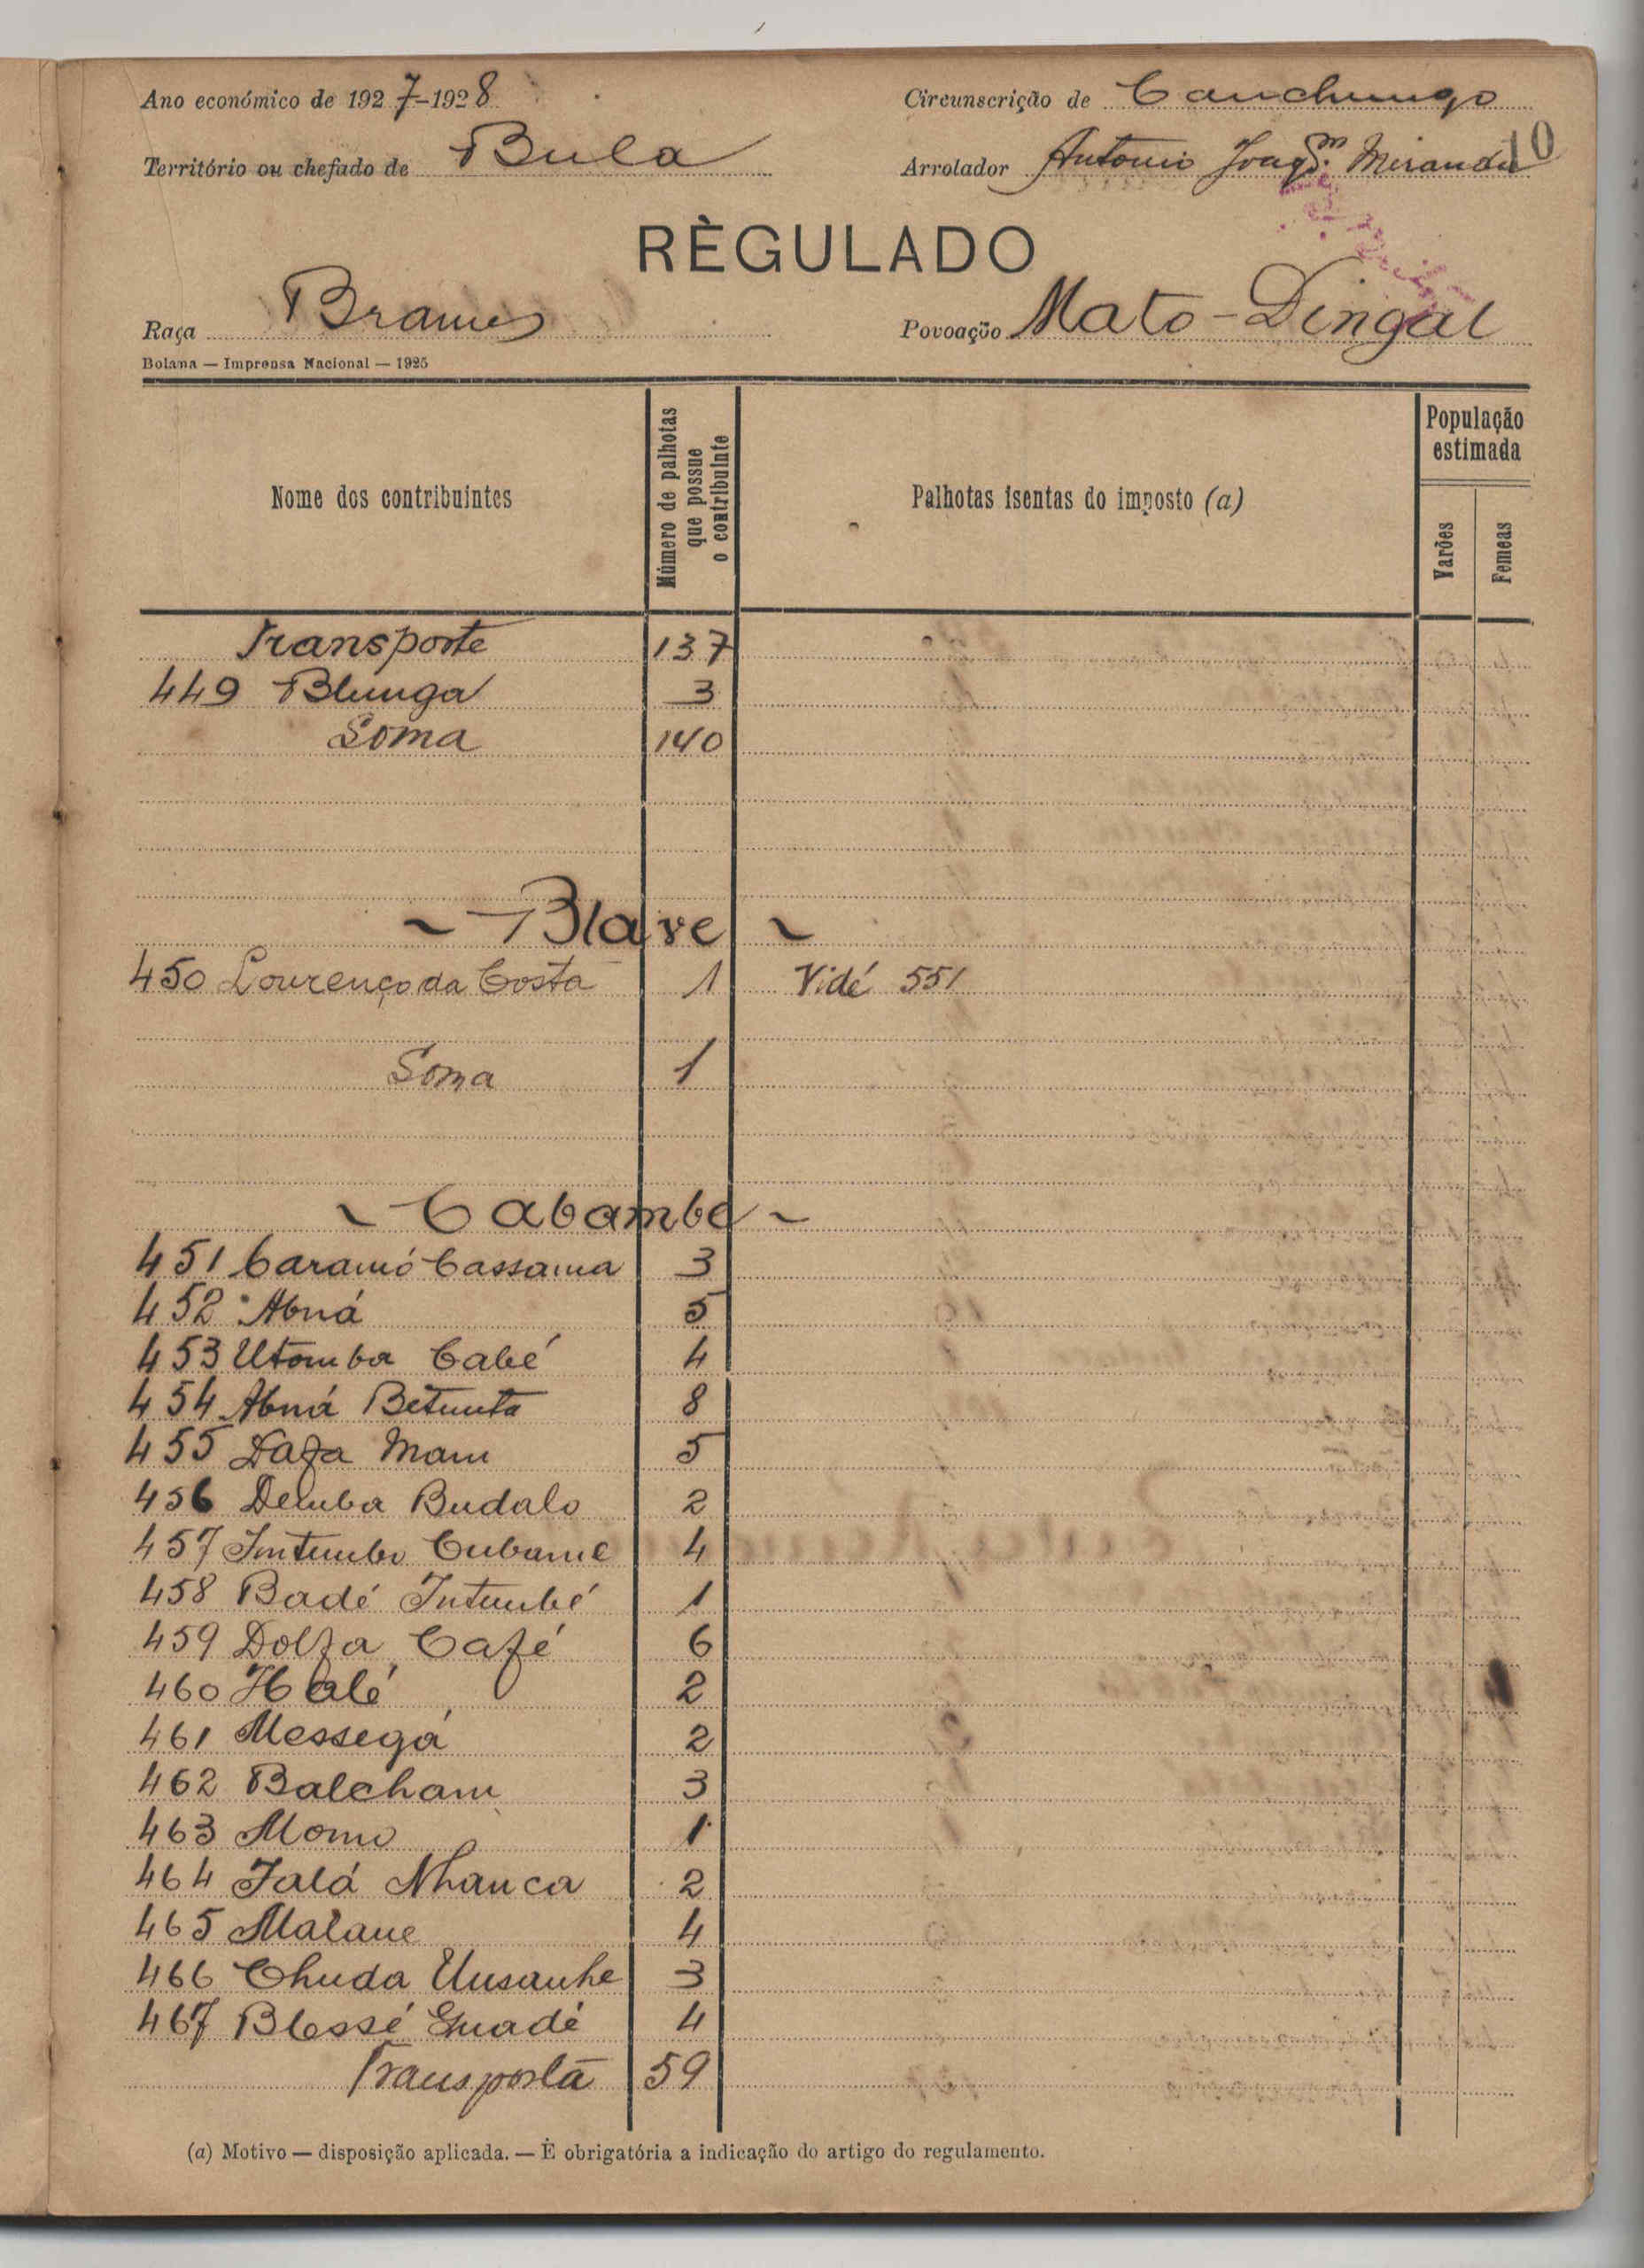 Ano económico de 1927-1928
Circunscrição de Canchungo
10
Território ou chefado de Bula
Arrolador Antonio Joaqm. Miranda
RÈGULADO
Raça Brames
Povoação Mato-Dingal
Bolama — Imprensa Nacional — 1925
Nome dos contribuintes
Número de palhotas que possue o contribuinte
Palhotas isentas do imposto (a)
População estimada
Varões
Femeas
Transporte 137
449 Blunga 3
Soma 140
~ Blave ~
450 Lourenço da Costa 1 Vidé 551
Soma 1
~ Cabambe ~
451 Caramó Cassama 3
452 Abná 5
453 Utomba Cabé 4
454 Abná Betunta 8
455 Dafa Mam 5
456 Demba Budalo 2
457 Intumbo Cubame 4
458 Badé Intumbé 1
459 Dolfa Café 6
460 Halé 2
461 Messegá 2
462 Balcham 3
463 Momo 1
464 Jalá Nhanca 2
465 Malane 4
466 Chuda Unsanhe 3
467 Blossé Guadé 4
Transporta 59
(a) Motivo — disposição aplicada. — È obrigatória a indicação do artigo do regulamento.